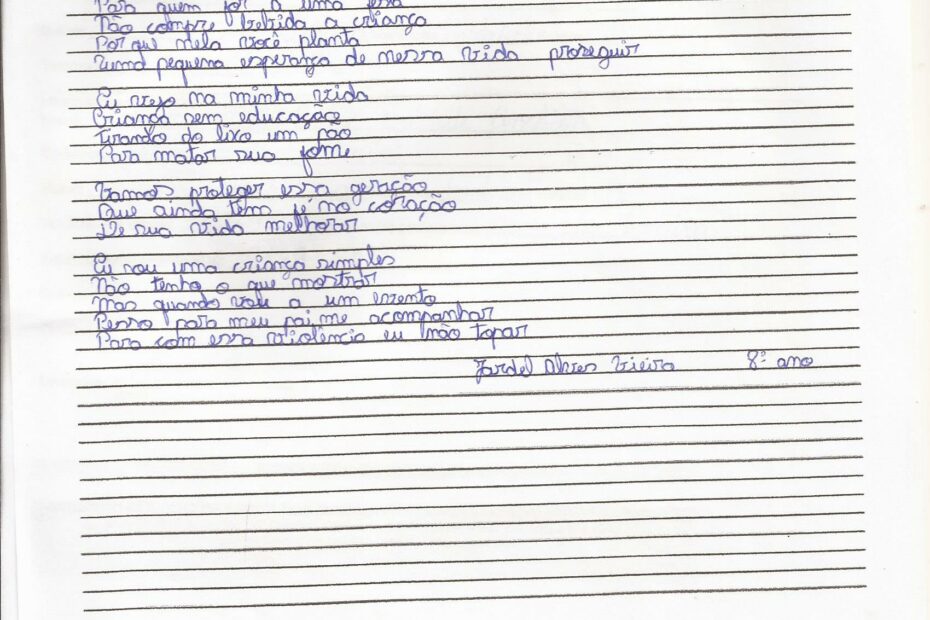 Para quem for a uma festa
Não compre bebida a criança
Por que nela você planta
Uma pequena esperança de nessa vida proseguir
Eu vejo na minha vida
Criança sem educação
Tirando do lixo um pão
Para matar sua fome
Vamos proteger essa geração
Que ainda tem fé no coração
De sua vida melhorar
Eu sou uma criança simples
Não tenho o que mostrar
Mas quando vou a um evento
Pesso para meu pai me acompanhar
Para com essa violência eu não topar
Jardel Alves Vieira 8º ano